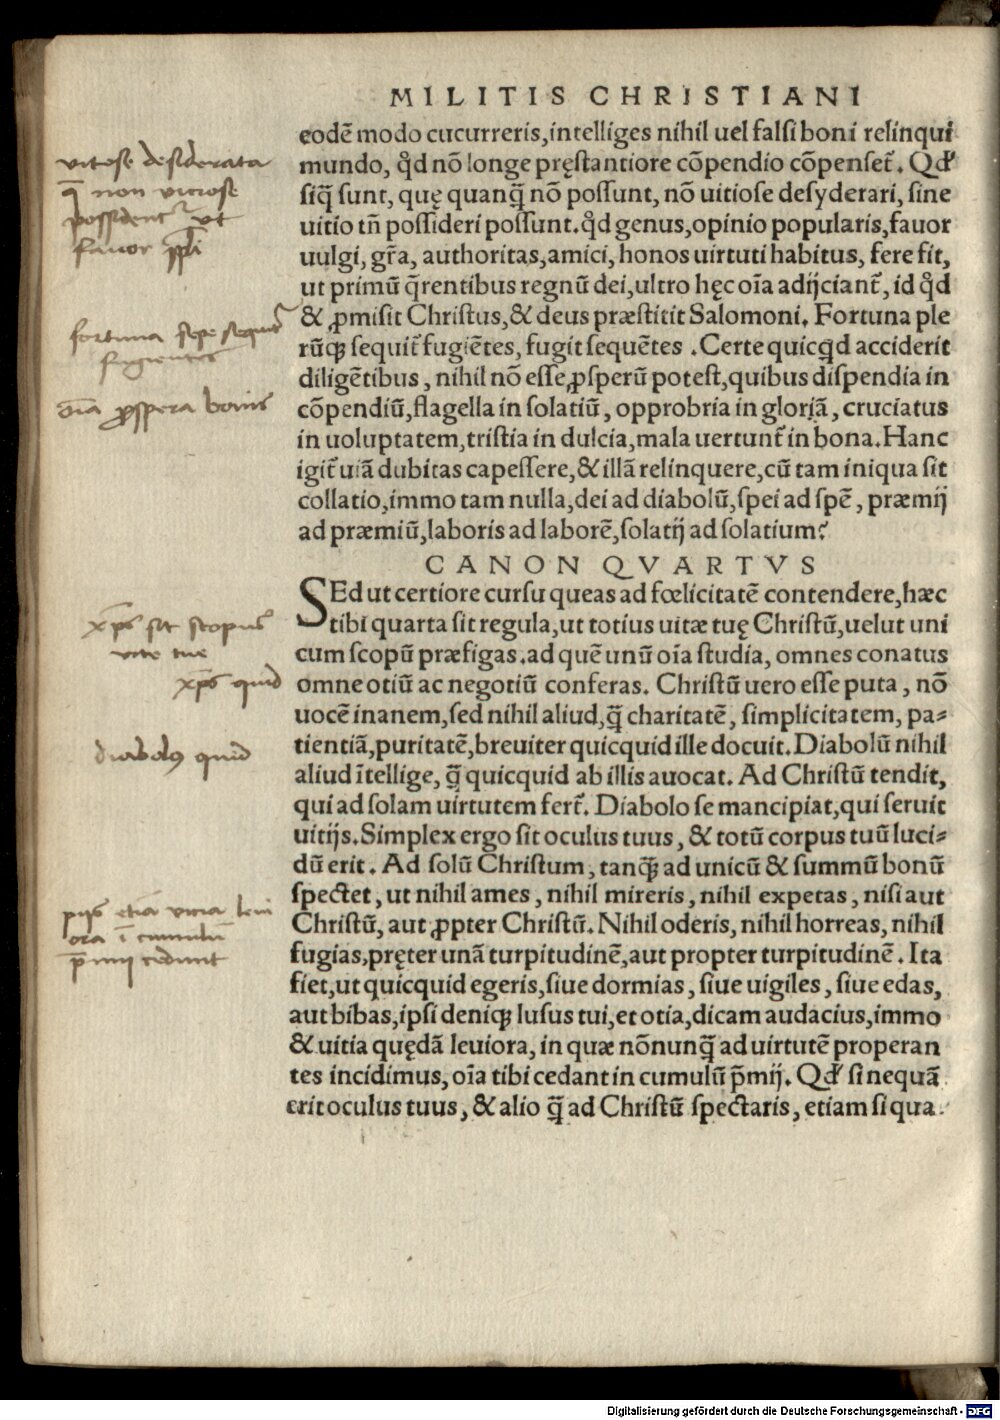 MILITIS CHRISTIANI
eodē modo cucurreris,intelliges nihil uel falsi boni relinqui
mundo, qd nō longe pręstantiore cōpendio cōpenset̃. Qd'
siq̃ sunt, quę quanq̃ nō possunt, nō uitiose desyderari, sine
uitio tñ possideri possunt. qd genus,opinio popularis,fauor
uulgi, gr̃a, authoritas,amici, honos uirtuti habitus, fere fit,
ut primū q̃rentibus regnū dei,ultro hęc oĩa adijciant̃, id qd
& ꝓmisit Christus,& deus præstitit Salomoni. Fortuna ple
rūqꝫ sequit̃ fugiētes, fugit sequētes .Certe quicqd acciderit
diligētibus , nihil nō esse ꝓsperū potest,quibus dispendia in
cōpendiū,flagella in solatiū , opprobria in gloriã, cruciatus
in uoluptatem,tristia in dulcia,mala uertunt̃ in bona.Hanc
igit̃ uiã dubitas capessere,& illã relinquere,cū tam iniqua sit
collatio,immo tam nulla,dei ad diabolū,spei ad spē , præmij
ad præmiū,laboris ad laborē,solatij ad solatium?
CANON QVARTVS
SEd ut certiore cursu queas ad fœlicitatē contendere,hæc
tibi quarta sit regula,ut totius uitæ tuę Christū,uelut uni
cum scopū præfigas.ad quē unū oĩa studia, omnes conatus
omne otiū ac negotiū conferas. Christū uero esse puta , nō
uocē inanem,sed nihil aliud,q̃ charitatē , simplicitatem, pa-
tientiã,puritatē,breuiter quicquid ille docuit.Diabolū nihil
aliud ītellige, q̃ quicquid ab illis auocat. Ad Christū tendit,
qui ad solam uirtutem fert̃. Diabolo se mancipiat,qui seruit
uitijs.Simplex ergo sit oculus tuus , & totū corpus tuū luci-
dū erit . Ad solū Christum , tanqꝫ ad unicū & summū bonū
spectet , ut nihil ames , nihil mireris , nihil expetas , nisi aut
Christū, aut ꝓpter Christū. Nihil oderis, nihil horreas, nihil
fugias,pręter unã turpitudinē,aut propter turpitudinē . Ita
fiet,ut quicquid egeris,siue dormias , siue uigiles , siue edas,
aut bibas,ipsi deniqꝫ lusus tui,et otia,dicam audacius,immo
& uitia quędã leuiora, in quæ nōnunq̃ ad uirtutē properan
tes incidimus, oĩa tibi cedant in cumulū p̃mij. Qd' si nequã
erit oculus tuus , & alio q̃ ad Christū spectaris, etiam si qua
vitiose desiderata
q̃ non vitiose
possident᷑ ut
fauor ppli
fortuna sepe sequit᷑
fugientes
oĩa ꝓspera bonis
xp̃s sit scopus
vite tue
xp̃s quid
diabolus quid
pijs etiã vitia leui
ora ī cumulū
p̃mij cedunt
Digitalisierung gefördert durch die Deutsche Forschungsgemeinschaft - DFG